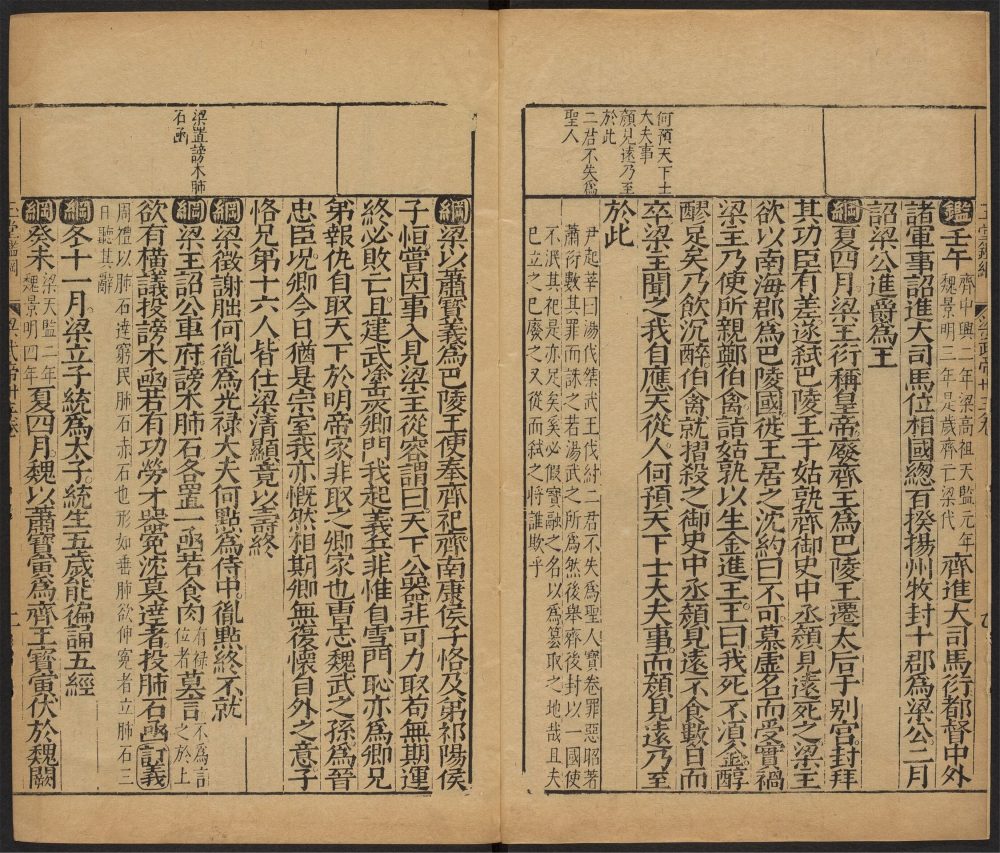 何預天下士
大夫事
顏見遠乃至
於此
二君不失爲
聖人
鑑壬午齊中興二年梁高祖天監元年魏景明三年是歲齊亡梁代齊進大司馬衍都督中外
諸軍事詔進大司馬位相國總百揆揚州牧封十郡爲梁公二月
詔梁公進爵爲王
綱夏四月梁王衍稱皇帝廢齊王爲巴陵王遷太后于別宮封拜
其功臣有差遂弒巴陵王于姑孰齊御史中丞顏見遠死之梁王
欲以南海郡爲巴陵國徙王居之沈約曰不可慕虛名而受實禍
梁王乃使所親鄭伯禽詣姑孰以生金進王王曰我死不須金醇
醪足矣乃飲沉醉伯禽就摺殺之御史中丞顏見遠不食數日而
卒梁王聞之我自應天從人何預天下士大夫事而顏見遠乃至
於此
尹起莘曰湯伐桀武王伐紂二君不失爲聖人寶卷罪惡昭著
蕭衍數其罪而誅之若湯武之所爲然後舉齊後封以一國使
不泯其祀是亦足矣奚必假寶融之名以爲篡取之地哉且夫
巳立之巳廢之又從而弒之將誰欺乎
梁置謗木肺
石函
綱梁以蕭寶義爲巴陵王使奉齊祀齊南康侯子恪及第祁陽侯
子恒嘗因事入見梁王從容謂曰天下公器非可力取苟無期運
終必敗亡且建武塗炭卿門我起義兵非惟自雪門恥亦爲卿兄
第報仇自取天下於明帝家非取之卿家也曹志魏武之孫爲晉
忠臣况卿今日猶是宗室我亦慨然相期卿無復懷自外之意子
恪兄第十六人皆仕梁清顯竟以壽終
綱梁徵謝朏何胤爲光禄大夫何點爲侍中胤點終不就
綱梁王詔公車府謗木肺石各置一函若食肉有禄位者莫言不爲言之於上
欲有橫議投謗木函若有功勞才器冤沈莫達者投肺石函訂義
周禮以肺石達窮民肺石赤石也形如垂肺欲伸寃者立肺石三
日聽其辭
綱冬十一月梁立子統爲太子統生五歲能徧誦五經
綱癸未梁天監二年魏景明四年夏四月魏以蕭寶寅爲齊王寶寅伏於魏闕